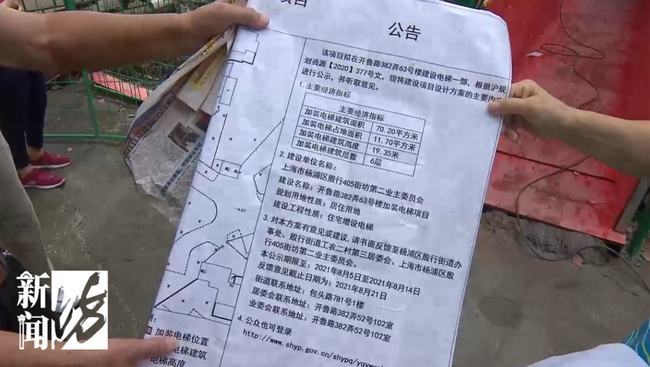 项目
公告
该项目拟在开鲁路382弄63号楼建设电梯一部，根据沪规
划资源【2020】377号文，现将建设项目设计方案的主要内
进行公示，并听取意见。
1.主要经济指标
主要经济指标
加装电梯建筑面积 70.20平方米
加装电梯占地面积 11.70平方米
加装电梯建筑高度 19.35米
加装电梯建筑层数 6层
2.建设单位名称：
上海市杨浦区殷行405街坊第二业主委员会
建设名称：开鲁路382弄63号楼加装电梯项目
规划用地性质：居住用地
建设工程性质：住宅增设电梯
3.对本方案有意见或建议，请书面反馈至杨浦区殷行街道办
事处、殷行街道工农二村第三居委会、上海市杨浦区殷
行405街坊第二业主委员会。
本公示期限至：2021年8月5日至2021年8月14日
反馈意见截止日期为：2021年8月21日
街道联系地址：包头路781号1楼
居委会联系地址：开鲁路382弄52号102室
业委会联系地址：开鲁路382弄52号102室
4.公众也可登录
http://www.shyp.gov.cn/shypq/
加装电梯位置
电梯建筑
电梯高度
新闻坊